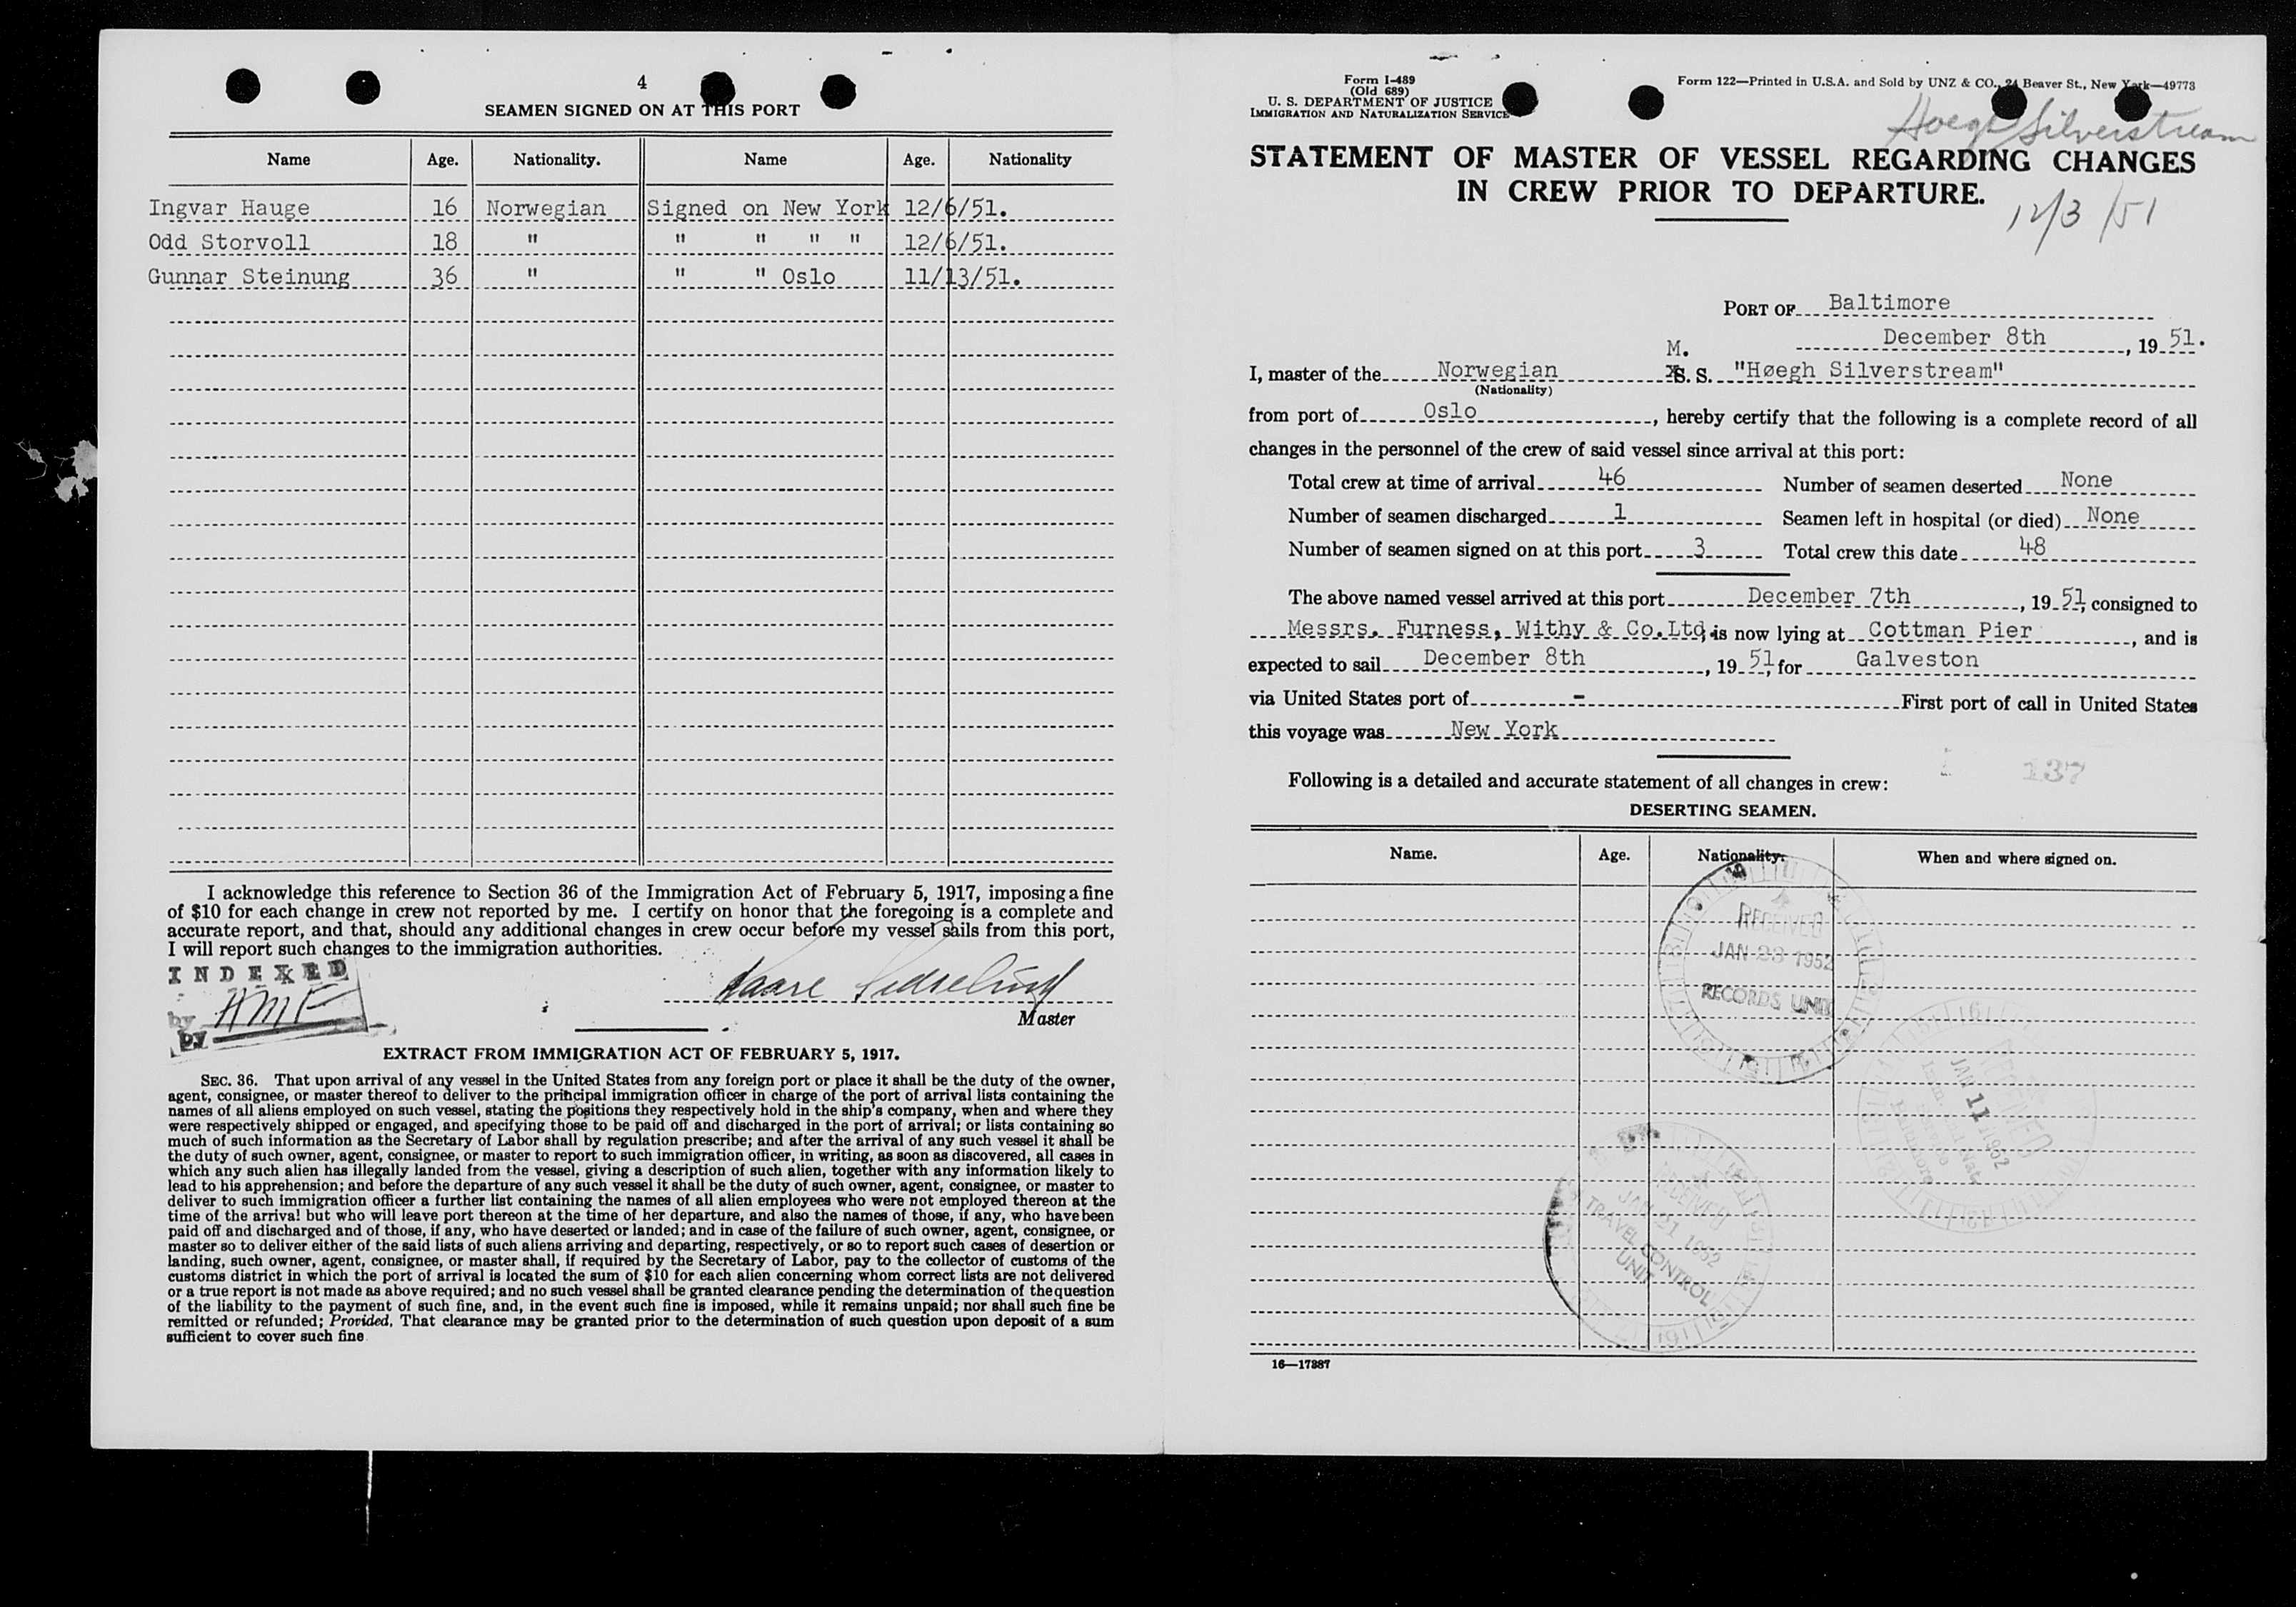 4
SEAMEN SIGNED ON AT THIS PORT
Name Age. Nationality. Name Age. Nationality
Ingvar Hauge 16 Norwegian Signed on New York 12/6/51.
Odd Storvoll 18 " " " " " 12/6/51.
Gunnar Steinung 36 " " " Oslo 11/13/51.
I acknowledge this reference to Section 36 of the Immigration Act of February 5, 1917, imposing a fine
of $10 for each change in crew not reported by me. I certify on honor that the foregoing is a complete and
accurate report, and that, should any additional changes in crew occur before my vessel sails from this port,
I will report such changes to the immigration authorities.
INDEXED
by HMF
by
Kaare
Master
EXTRACT FROM IMMIGRATION ACT OF FEBRUARY 5, 1917.
SEC. 36. That upon arrival of any vessel in the United States from any foreign port or place it shall be the duty of the owner,
agent, consignee, or master thereof to deliver to the principal immigration officer in charge of the port of arrival lists containing the
names of all aliens employed on such vessel, stating the positions they respectively hold in the ship's company, when and where they
were respectively shipped or engaged, and specifying those to be paid off and discharged in the port of arrival; or lists containing so
much of such information as the Secretary of Labor shall by regulation prescribe; and after the arrival of any such vessel it shall be
the duty of such owner, agent, consignee, or master to report to such immigration officer, in writing, as soon as discovered, all cases in
which any such alien has illegally landed from the vessel, giving a description of such alien, together with any information likely to
lead to his apprehension; and before the departure of any such vessel it shall be the duty of such owner, agent, consignee, or master to
deliver to such immigration officer a further list containing the names of all alien employees who were not employed thereon at the
time of the arrival but who will leave port thereon at the time of her departure, and also the names of those, if any, who have been
paid off and discharged and of those, if any, who have deserted or landed; and in case of the failure of such owner, agent, consignee, or
master so to deliver either of the said lists of such aliens arriving and departing, respectively, or so to report such cases of desertion or
landing, such owner, agent, consignee, or master shall, if required by the Secretary of Labor, pay to the collector of customs of the
customs district in which the port of arrival is located the sum of $10 for each alien concerning whom correct lists are not delivered
or a true report is not made as above required; and no such vessel shall be granted clearance pending the determination of the question
of the liability to the payment of such fine, and, in the event such fine is imposed, while it remains unpaid; nor shall such fine be
remitted or refunded; Provided, That clearance may be granted prior to the determination of such question upon deposit of a sum
sufficient to cover such fine
Form I-489
(Old 689)
U. S. DEPARTMENT OF JUSTICE
IMMIGRATION AND NATURALIZATION SERVICE
Form 122—Printed in U.S.A. and Sold by UNZ & CO., 24 Beaver St., New York—49773
Hoegh Silverstream
STATEMENT OF MASTER OF VESSEL REGARDING CHANGES
IN CREW PRIOR TO DEPARTURE.
12/3/51
PORT OF Baltimore
December 8th, 19 51.
I, master of the Norwegian M. S. S. "Høegh Silverstream"
(Nationality)
from port of Oslo, hereby certify that the following is a complete record of all
changes in the personnel of the crew of said vessel since arrival at this port:
Total crew at time of arrival 46 Number of seamen deserted None
Number of seamen discharged 1 Seamen left in hospital (or died) None
Number of seamen signed on at this port 3 Total crew this date 48
The above named vessel arrived at this port December 7th, 19 51, consigned to
Messrs. Furness, Withy & Co.Ltd, is now lying at Cottman Pier, and is
expected to sail December 8th, 19 51, for Galveston
via United States port of - First port of call in United States
this voyage was New York
137
Following is a detailed and accurate statement of all changes in crew:
DESERTING SEAMEN.
Name. Age. Nationality. When and where signed on.
RECEIVED
JAN 23 1952
RECORDS UNIT
RECEIVED
JAN 11 1952
Baltimore
RECEIVED
JAN 21 1952
TRAVEL CONTROL
UNIT
16—17387